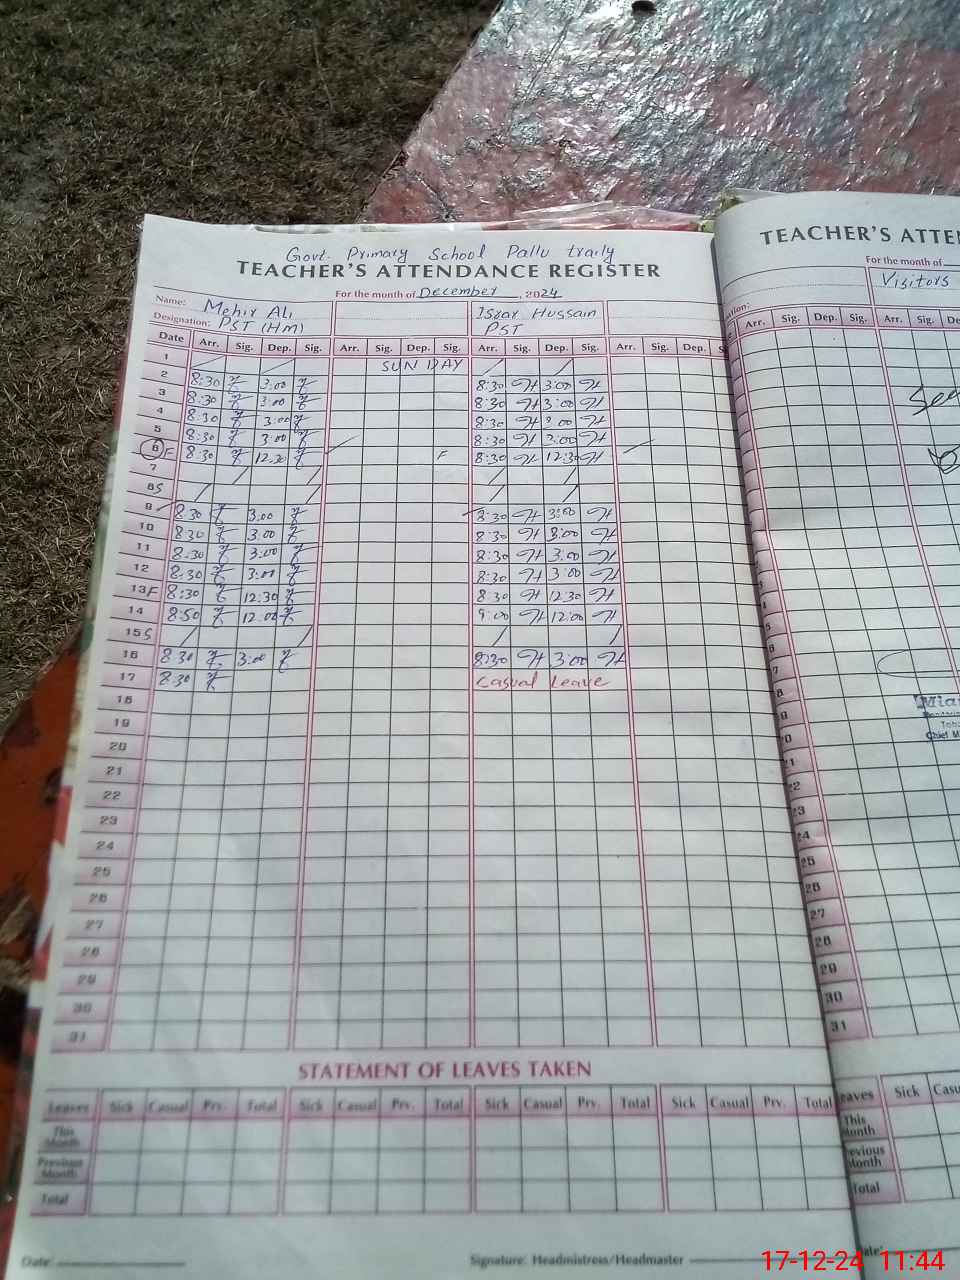 Govt. Primary School Pallu traily
TEACHER'S ATTENDANCE REGISTER
For the month of December, 2024
Name: Mehir Ali Israr Hussain
Designation: PST (HM) PST
Date Arr. Sig. Dep. Sig. Arr. Sig. Dep. Sig. Arr. Sig. Dep. Sig. Arr. Sig. Dep. S
1 SUNDAY
2 8:30 3:00 8:30 3:00
3 8:30 3:00 8:30 3:00
4 8:30 3:00 8:30 3:00
5 8:30 3:00 8:30 3:00
6 F 8:30 12:30 F 8:30 12:30
7
8 S
9 8:30 3:00 8:30 3:00
10 8:30 3:00 8:30 3:00
11 8:30 3:00 8:30 3:00
12 8:30 3:00 8:30 3:00
13 F 8:30 12:30 8:30 12:30
14 8:50 12:00 9:00 12:00
15 S
16 8:30 3:00 8:30 3:00
17 8:30 Casual Leave
18
19
20
21
22
23
24
25
26
27
28
29
30
31
STATEMENT OF LEAVES TAKEN
Leaves Sick Casual Prv. Total Sick Casual Prv. Total Sick Casual Prv. Total Sick Casual Prv. Total
This Month
Previous Month
Total
Date: Signature: Headmistress/Headmaster
TEACHER'S ATTE
For the month of
Visitors
Arr. Sig. Dep. Sig. Arr. Sig. De
22
23
24
25
26
27
28
29
30
31
eaves Sick Casu
This
Month
evious
Month
Total
17-12-24 11:44